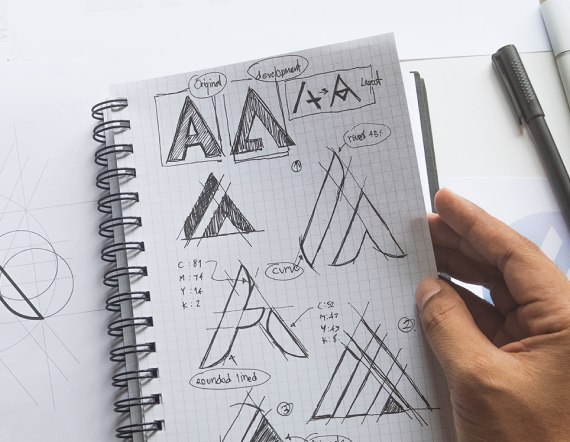 Original
development
A
Layout
round 45%
1
C : 89
M : 74
Y : 14
K : 2
curve
C : 52
M : 47
Y : 47
K : 8
2
rounded lined
3